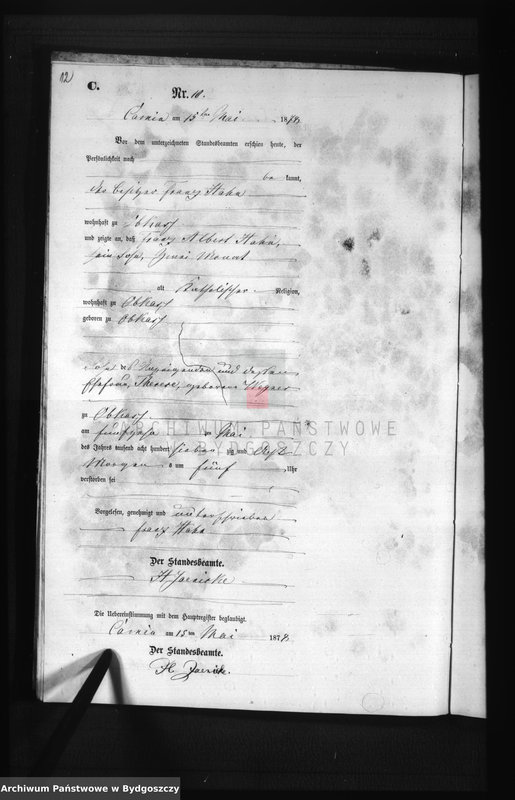 12
C.
Nr. 10.
am 15ten Mai 1878
Vor dem unterzeichneten Standesbeamten erschien heute, der
Persönlichkeit nach
be kannt,
der Besitzer Franz Hahn
wohnhaft zu Obkass
und zeigte an, daß Franz Albert Hahn,
sein Sohn, zwei Monat
alt Katholischer Religion,
wohnhaft zu Obkass
geboren zu Obkass
Sohn des Anzeigenden und dessen
Ehefrau, Therese, geborene Wegner
zu Obkass
am fünfzehn ten Mai
des Jahres tausend acht hundert sieben zig und Acht
Morgen s um fünf Uhr
verstorben sei
Vorgelesen, genehmigt und unterschrieben
Franz Hahn
Der Standesbeamte.
H Jaenicke
Die Uebereinstimmung mit dem Hauptregister beglaubigt.
am 15ten Mai 1878
Der Standesbeamte.
H. Jaenicke.
ARCHIWUM PAŃSTWOWE
W BYDGOSZCZY
Archiwum Państwowe w Bydgoszczy